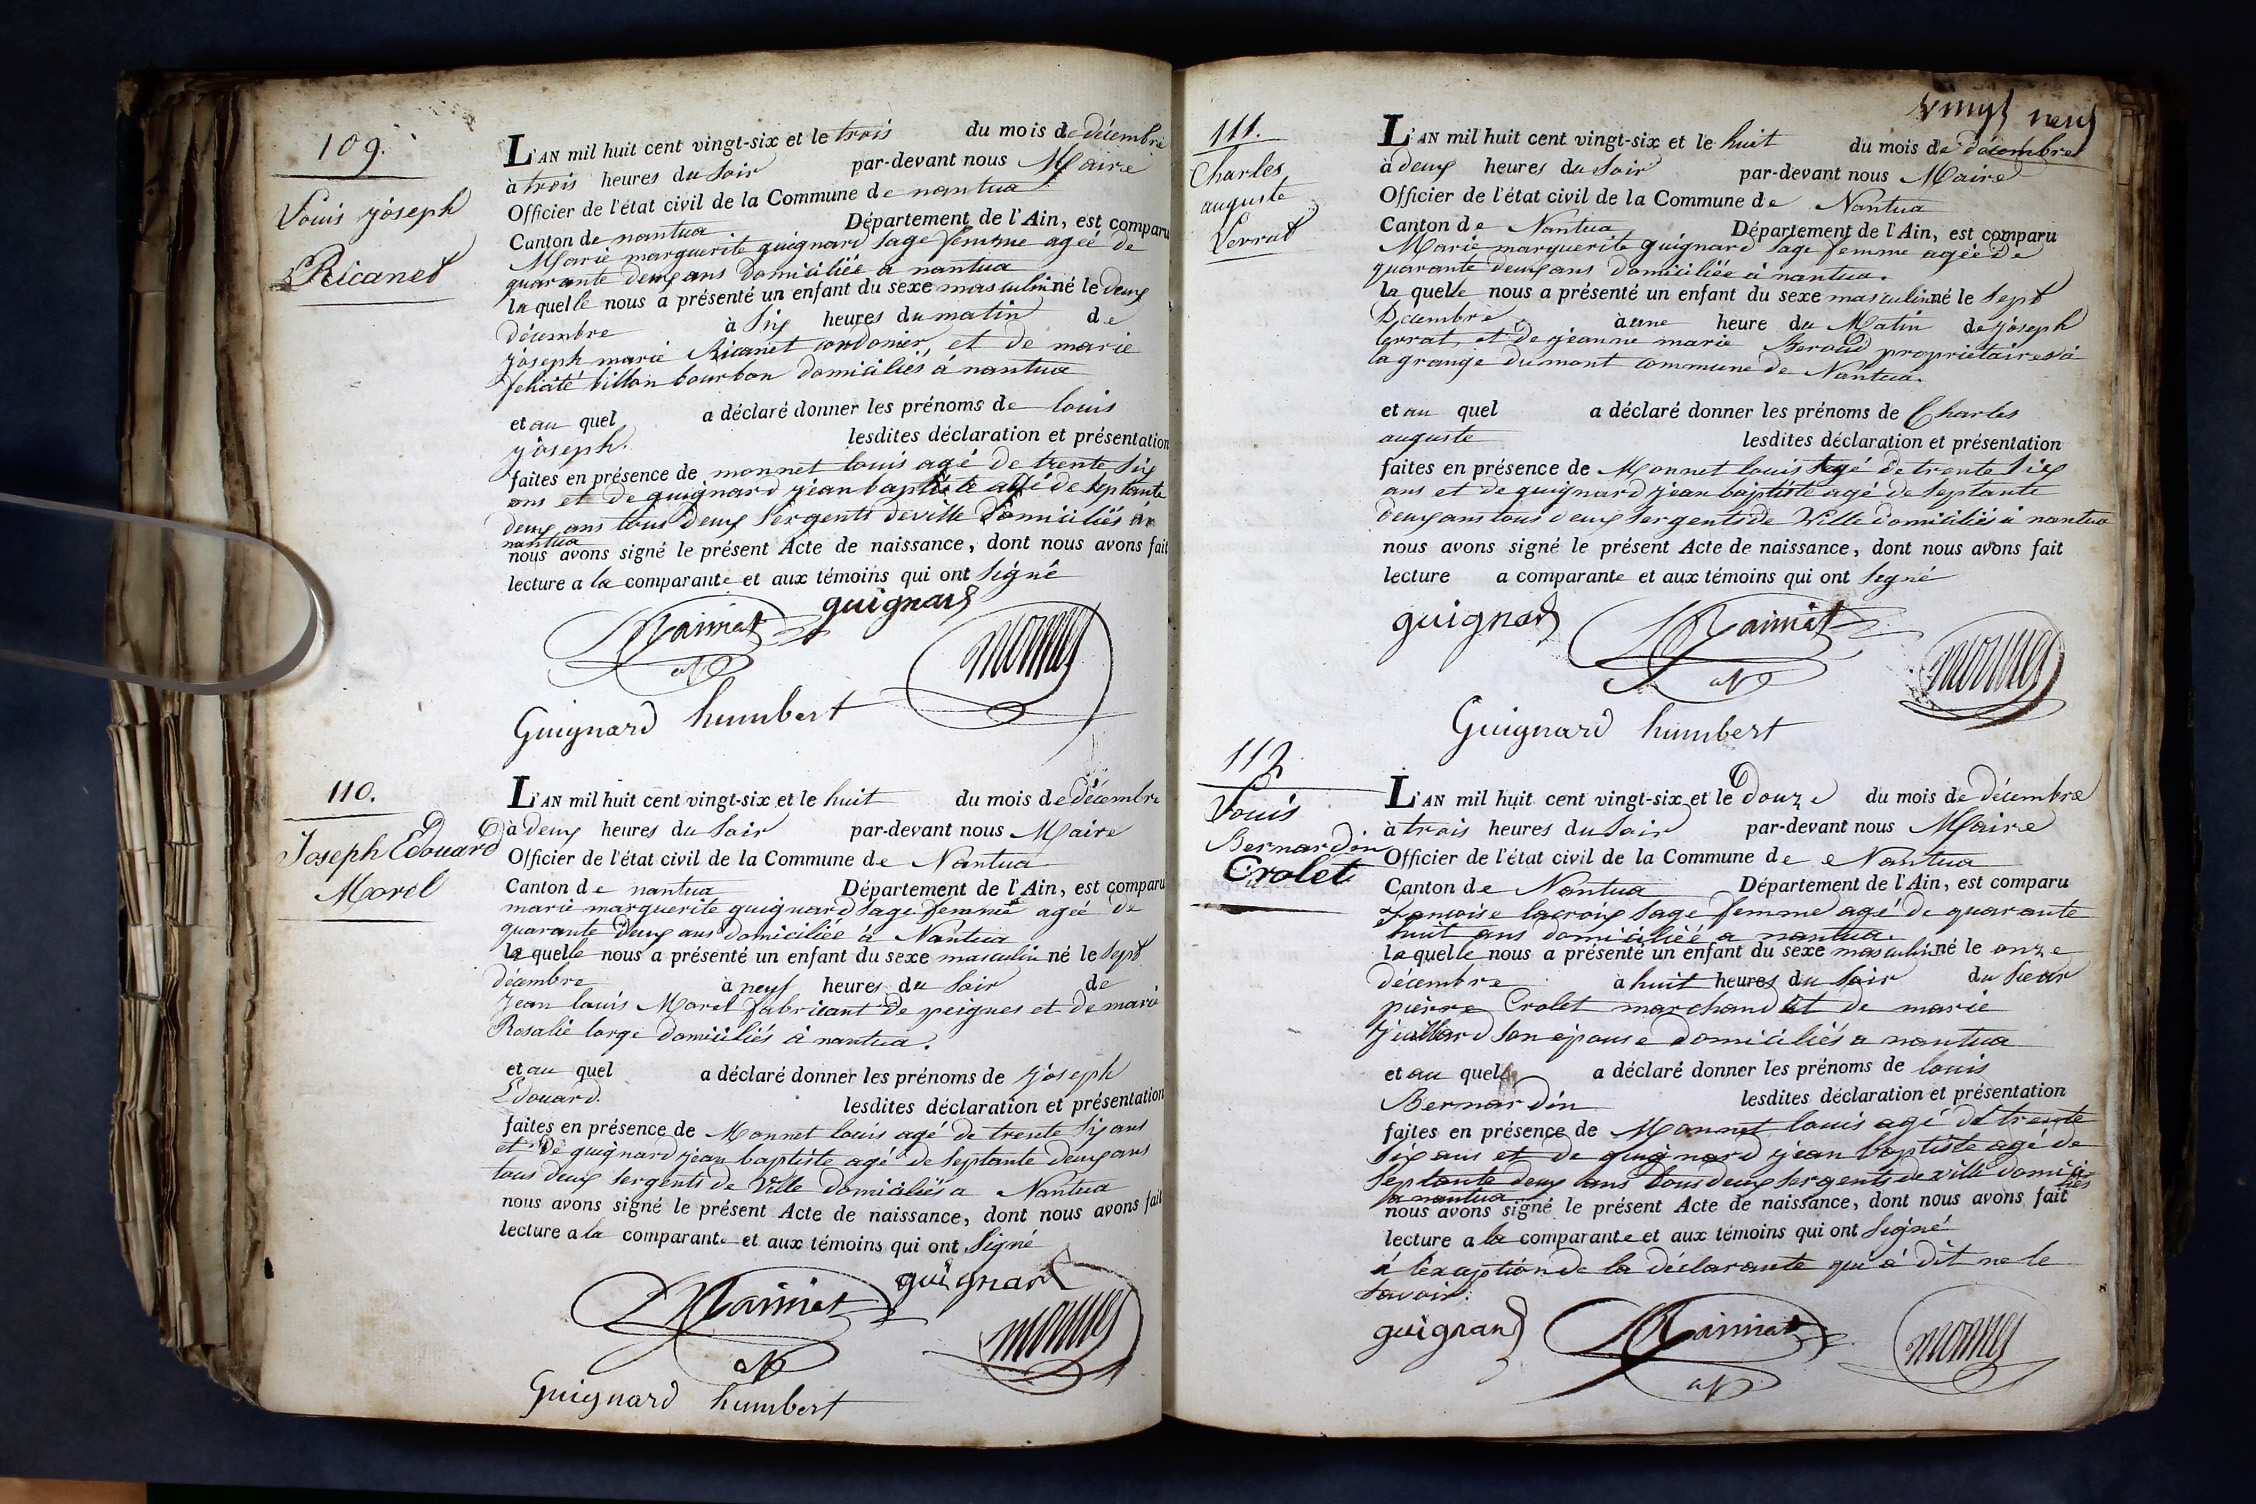 109.
Louis joseph
Ricanet
L'AN mil huit cent vingt-six et le trois du mois de décembre
à trois heures du soir par-devant nous Maire
Officier de l'état civil de la Commune de nantua
Canton de nantua Département de l'Ain, est comparu
Marie marguerite guignard sage femme ageé de
quarante deux ans domiciliée a nantua
la quelle nous a présenté un enfant du sexe masculin né le deux
décembre à six heures du matin de
joseph marie Ricanet cordonier et de marie
felicité billon bourbon domiciliés á nantua
et au quel a déclaré donner les prénoms de louis
joseph. lesdites déclaration et présentation
faites en présence de monnet louis agé de trente six
ans et de guignard jean baptiste agé de septante
deux ans tous deux sergents de ville domiciliés a
nantua
nous avons signé le présent Acte de naissance, dont nous avons fait
lecture a la comparante et aux témoins qui ont signé
guignard
monnet
Guignard humbert
110.
Joseph Edouard
Morel
L'AN mil huit cent vingt-six et le huit du mois de décembre
à deux heures du soir par-devant nous Maire
Officier de l'état civil de la Commune de Nantua
Canton de nantua Département de l'Ain, est comparu
marie marguerite guignard sage femme ageé de
quarante deux ans domiciliée à Nantua
la quelle nous a présenté un enfant du sexe masculin né le sept
décembre à neuf heures du soir de
jean louis Morel fabricant de peignes et de marie
Rosalie large domiciliés à nantua.
et au quel a déclaré donner les prénoms de joseph
Edouard. lesdites déclaration et présentation
faites en présence de Monnet louis agé de trente six ans
et de guignard jean baptiste agé de septante deux ans
tous deux sergents de Ville domiciliés a Nantua
nous avons signé le présent Acte de naissance, dont nous avons fait
lecture a la comparante et aux témoins qui ont signé
guignard
monnet
Guignard humbert
vingt neuf
111.
Charles
auguste
Verrat
L'AN mil huit cent vingt-six et le huit du mois de décembre
à deux heures du soir par-devant nous Maire
Officier de l'état civil de la Commune de Nantua
Canton de Nantua Département de l'Ain, est comparu
Marie marguerite guignard sage femme ageé de
quarante deux ans domiciliée à nantua.
la quelle nous a présenté un enfant du sexe masculin né le sept
Décembre à une heure du Matin de joseph
et de jeanne marie Beroud propriétaires à
la grange du mont commune de Nantua.
et au quel a déclaré donner les prénoms de Charles
auguste lesdites déclaration et présentation
faites en présence de Monnet louis agé de trente six
ans et de guignard jean baptiste agé de septante
deux ans tous deux sergents de Ville domiciliés à nantua
nous avons signé le présent Acte de naissance, dont nous avons fait
lecture a comparante et aux témoins qui ont signé
guignard
monnet
Guignard humbert
112
Louis
Bernardin
Crolet
L'AN mil huit cent vingt-six et le douze du mois de décembre
à trois heures du soir par-devant nous Maire
Officier de l'état civil de la Commune de Nantua
Canton de Nantua Département de l'Ain, est comparu
françoise lacroix sage femme agé de quarante
huit ans domiciliée a nantua.
la quelle nous a présenté un enfant du sexe masculin né le onze
décembre à huit heures du soir du sieur
pierre Crolet marchand et de marie
juillard son épouse domiciliés a nantua
et au quel a déclaré donner les prénoms de louis
Bernardin lesdites déclaration et présentation
faites en présence de Monnet louis agé de trente
six ans et de guignard jean baptiste agé de
septante deux ans tous deux sergents de ville domiciliés
a nantua
nous avons signé le présent Acte de naissance, dont nous avons fait
lecture a la comparante et aux témoins qui ont signé
á l'exception de la déclarante qui á dit ne le
savoir.
guignard
monnet